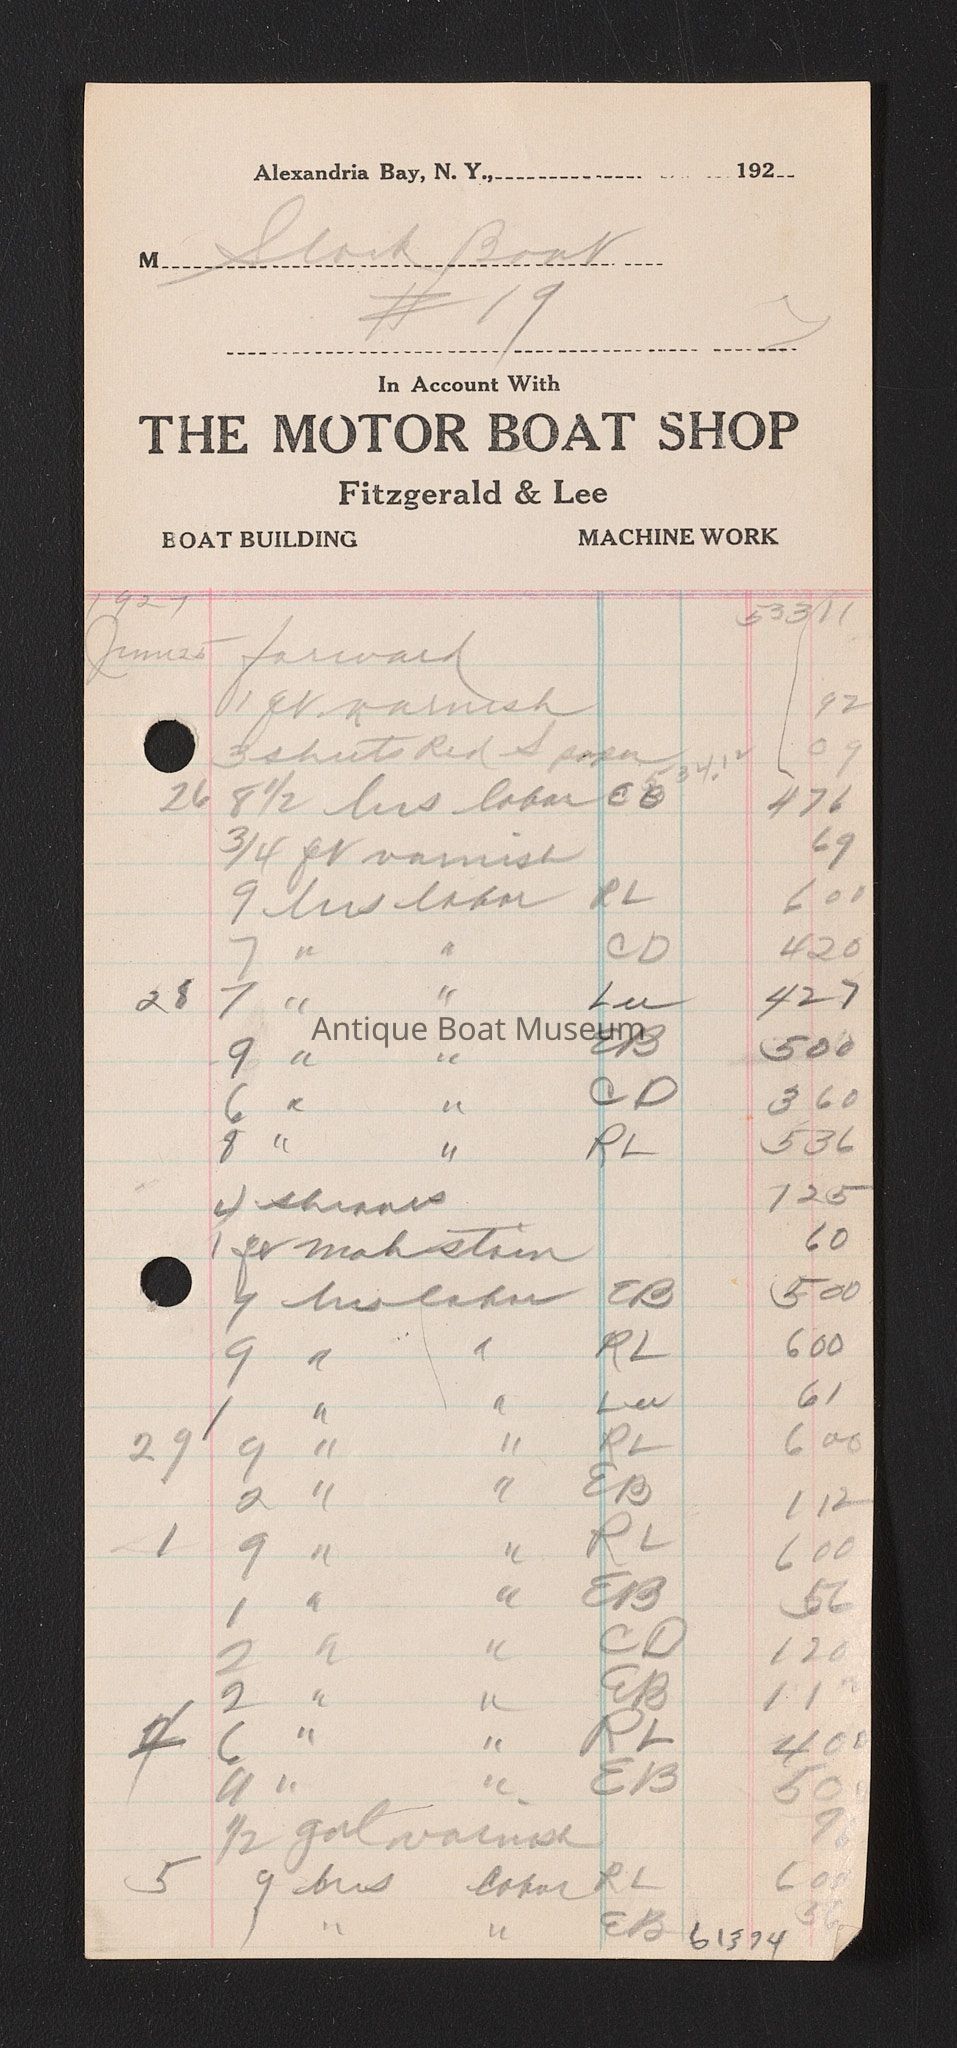 Alexandria Bay, N. Y., 192
M Stock Boat
# 19
In Account With
THE MOTOR BOAT SHOP
Fitzgerald & Lee
BOAT BUILDING MACHINE WORK
1927 533 11
June 25 forward
1 qt. varnish 92
3 sheets Red S paper 09
534.12
26 8 1/2 hrs labor EB 476
3/4 qt varnish 69
9 hrs labor RL 600
7 " " CD 420
28 7 " " Lee 427
9 " " EB 500
6 " " CD 360
8 " " RL 536
4 725
1 qt mah stain 60
9 hrs labor EB 500
9 " " RL 600
1 " " Lee 61
29 9 " " RL 600
2 " " EB 112
1 9 " " RL 600
1 " " EB 56
2 " " CD 120
2 " " EB 11
6 " " RL 400
9 " " EB 50
1/2 varnish 9
5 9 hrs labor RL 600
1 " " EB 56
61374
Antique Boat Museum